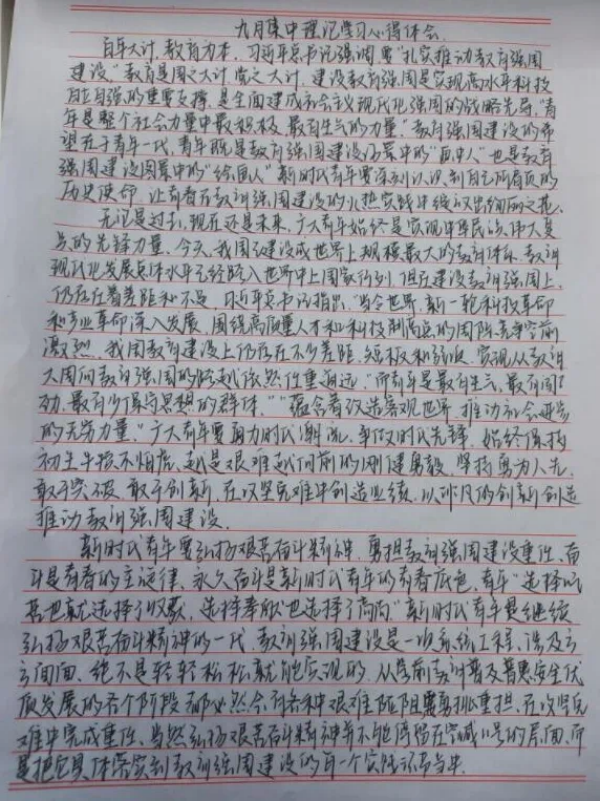 九月集中理论学习心得体会
百年大计,教育为本,习近平总书记强调要“扎实推动教育强国
建设”教育是国之大计,党之大计,建设教育强国是实现高水平科技
自立自强的重要支撑,是全面建成社会主义现代化强国的战略先导,“青
年是整个社会力量中最积极、最有生气的力量。”教育强国建设的希
望在于青年一代,青年既是教育强国建设场景中的“画中人”也是教育
强国建设图景中的“绘画人”新时代青年要深刻认识到自己所肩负的
历史使命,让青春在教育强国建设的火热实践中绽放出绚丽之花。
无论是过去、现在还是未来,广大青年始终是实现中华民族伟大复
兴的先锋力量。今天,我国已建成世界上规模最大的教育体系,教育
现代化发展总体水平已经跨入世界中上国家行列,但在建设教育强国上,
仍存在着差距和不足。习近平总书记指出,“当今世界,新一轮科技革命
和产业革命深入发展,围绕高质量人才和科技制高点的国际竞争空前
激烈。我国教育建设上仍存在不少差距、短板和弱项,实现从教育
大国向教育强国的跨越依然任重道远。”而青年是最有生气、最有闯
劲、最有少保守思想的群体,”“蕴含着改造客观世界、推动社会进步
的无穷力量。”广大青年要勇力时代潮流,争做时代先锋,始终保持
初生牛犊不怕虎、越是艰难越向前的刚健勇毅,坚持勇为人先、
敢于突破、敢于创新,在攻坚克难中创造业绩,以非凡的创新创造
推动教育强国建设。
新时代青年要弘扬艰苦奋斗精神,勇担教育强国建设重任,奋
斗是青春的主旋律,永久奋斗是新时代青年的青春底色,青年“选择吃
苦也就选择了收获,选择奉献也选择了高尚。”新时代青年要继续
弘扬艰苦奋斗精神的一代,教育强国建设是一项系统工程,涉及方
方面面,绝不是轻轻松松就能实现的,从学前教育普及普惠安全优
质发展的各个阶段都必然会有各种艰难险阻要勇挑重担,在攻坚克
难中完成重任、当然弘扬艰苦奋斗精神并不能停留在空喊口号的层面,而
是把它具体落实到教育强国建设的每一个实践环节当中。